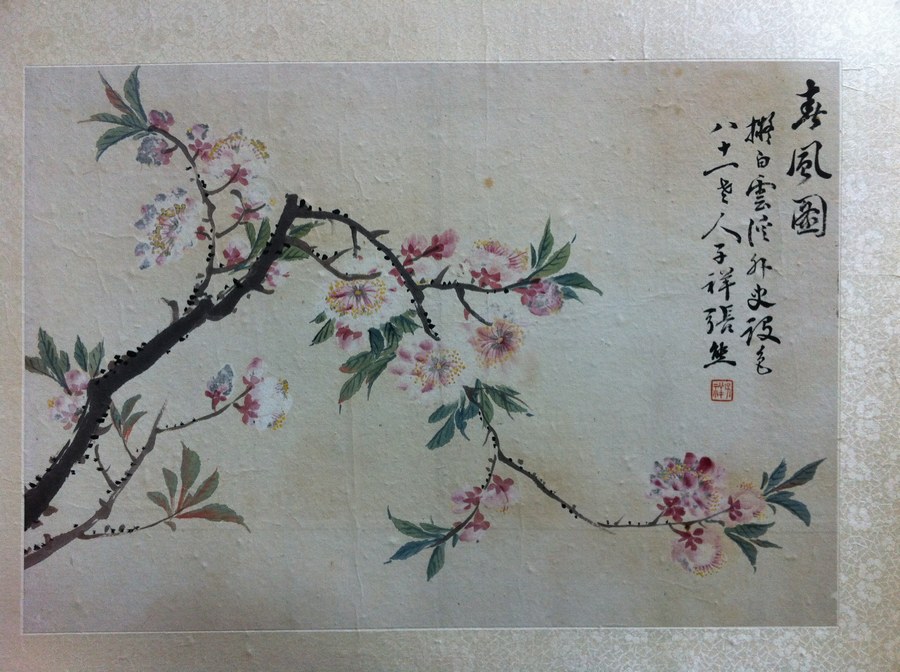 春風圖
擬白雲溪外史設色
八十一老人子祥張熊